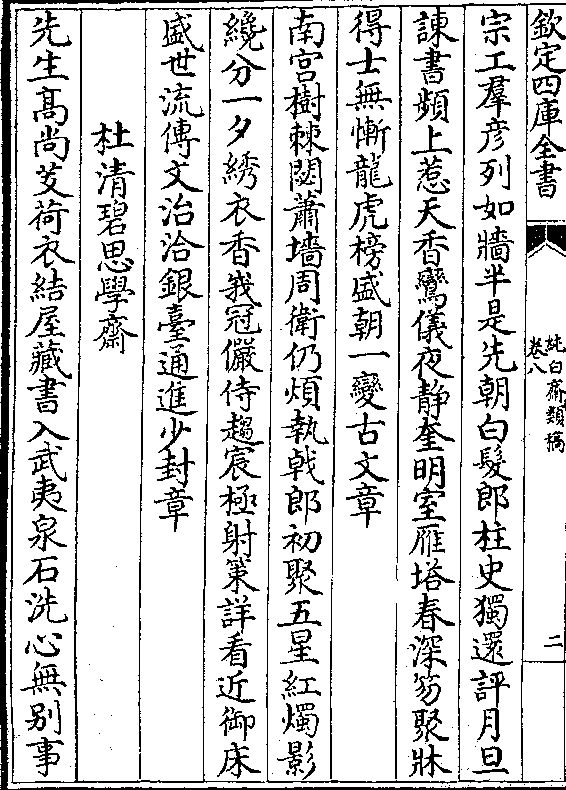 欽定四庫全書
純白齋類稿
卷八
二
宗工羣彦列如牆半是先朝白髮郎柱史獨還評月旦
諫書頻上惹天香鸞儀夜静奎明室雁塔春深笏聚牀
得士無慚龍虎榜盛朝一變古文章
南宫樹棘閟蕭墻周衛仍煩執㦸郎初聚五星紅燭影
纔分一夕綉衣香峩冠儼侍趨宸極射策詳看近御床
盛世流傳文治洽銀臺通進少封章
杜清碧思學齋
先生髙尚芰荷衣結屋藏書入武夷泉石洗心無别事